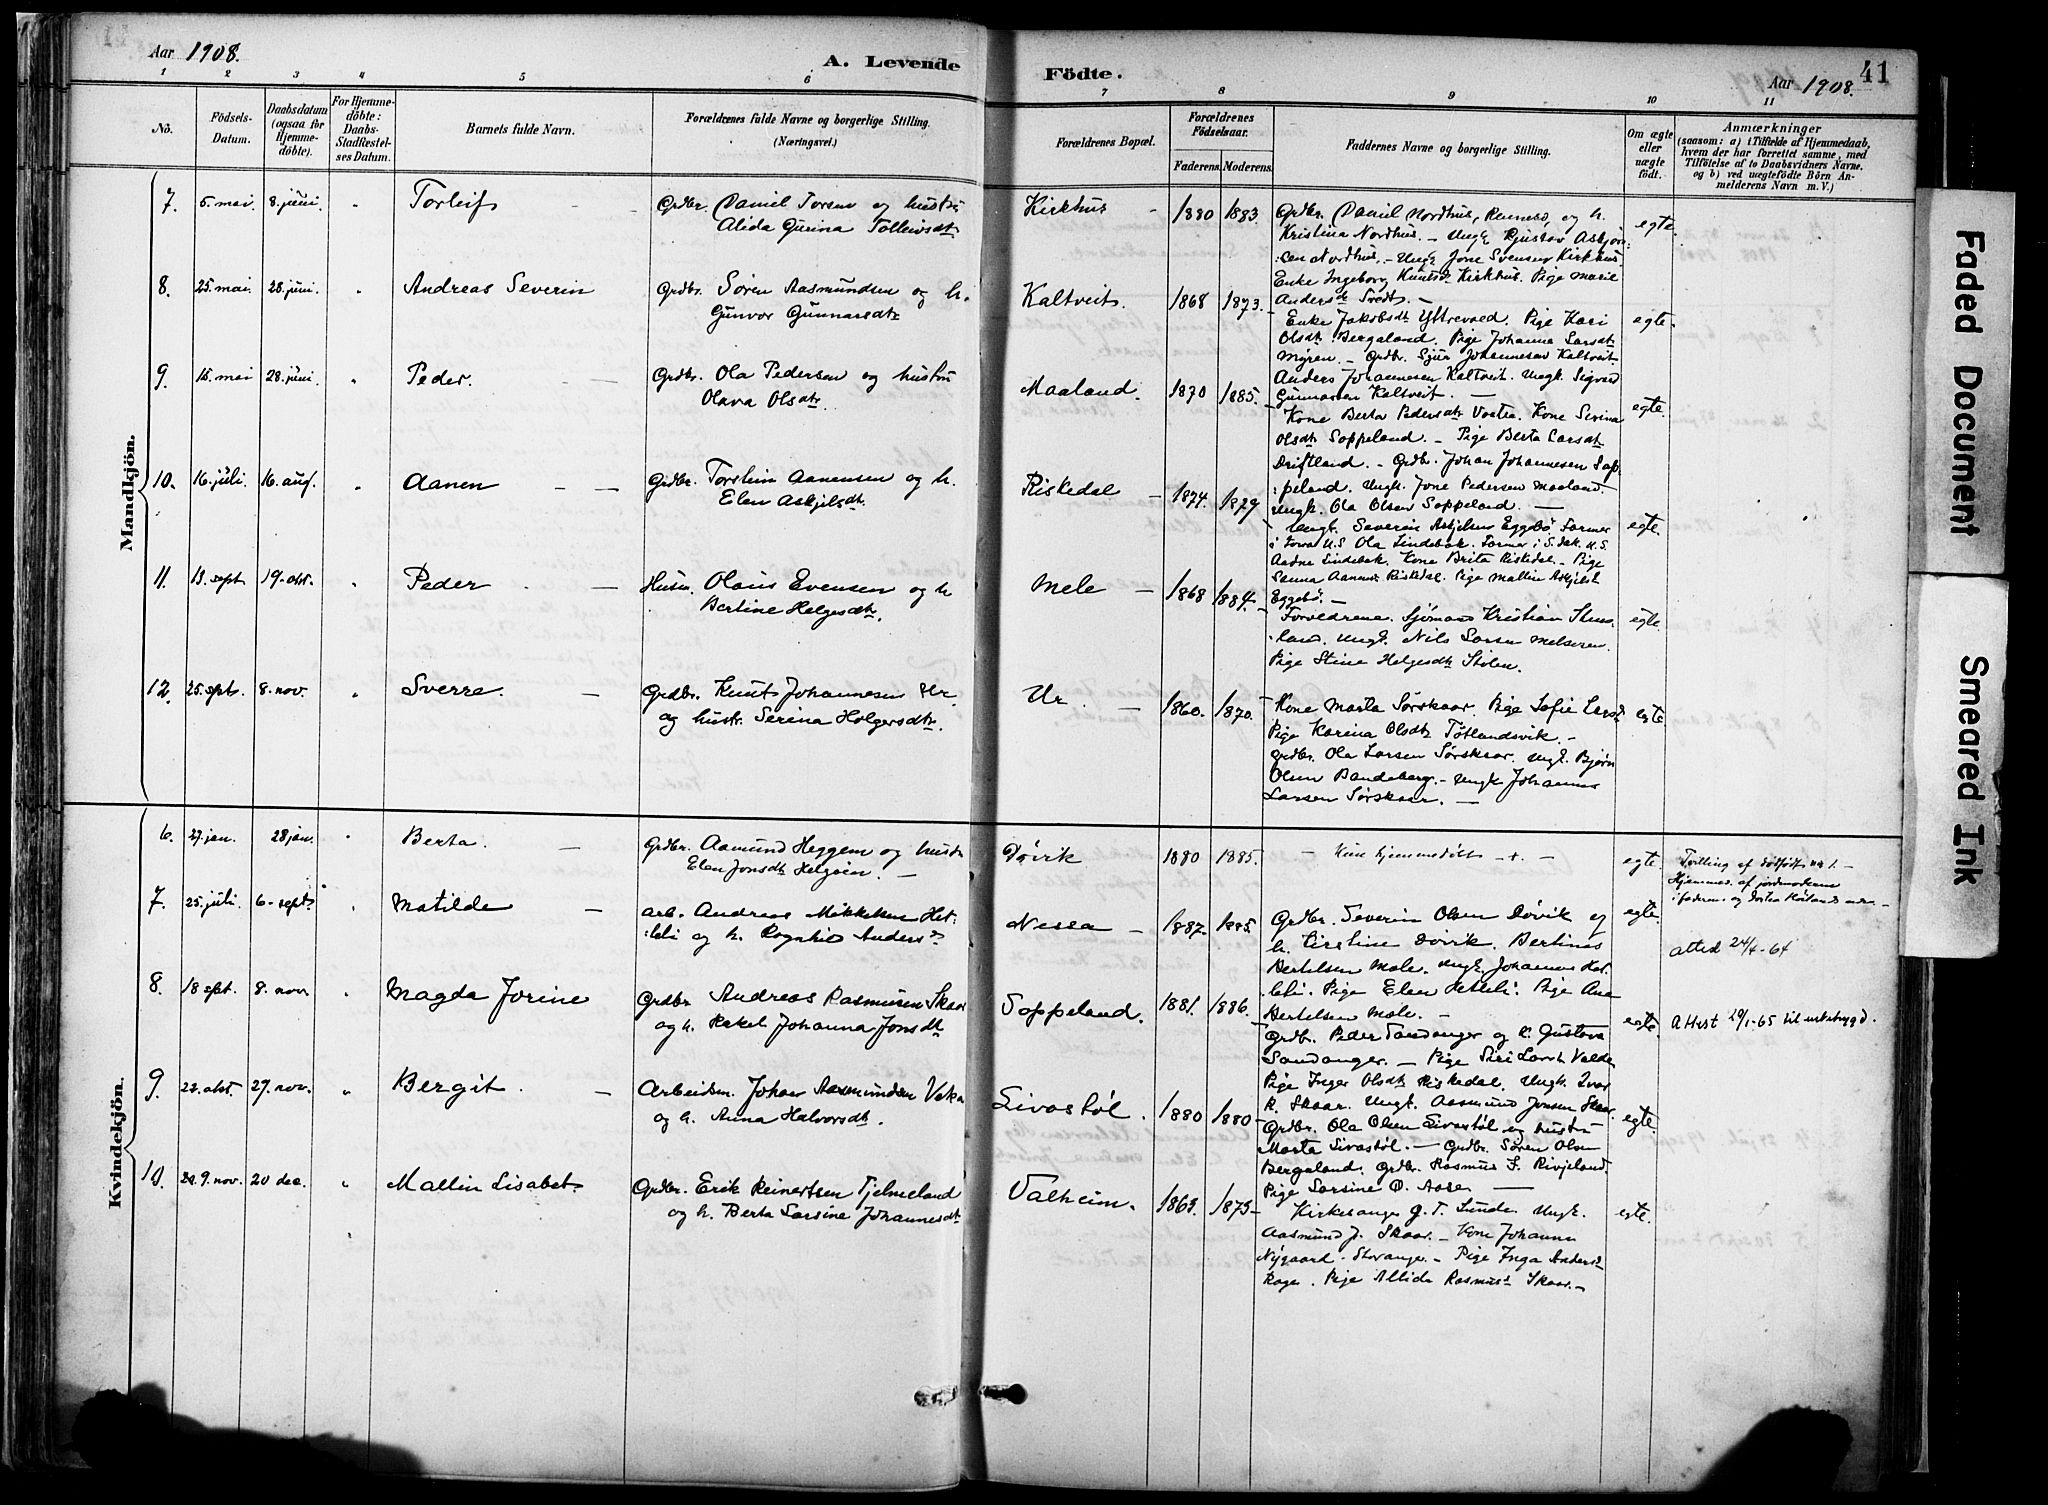 Aar 1908.
A. Levende
Födte.
Aar 1908.
41
1 2 3 4 5 6 7 8 9 10 11
No.
Födsels-Datum.
Daabsdatum (ogsaa for Hjemme-döbte).
For Hjemme-döbte: Daabs-Stadfæstel-ses Datum.
Barnets fulde Navn.
Forældrenes fulde Navne og borgerlige Stilling. (Næringsvei.)
Forældrenes Bopæl.
Forældrenes Födselsaar.
Faderens. Moderens.
Faddernes Navne og borgerlige Stilling.
Om ægte eller uægte födt.
Anmærkninger
(saasom: a) i Tilfælde af Hjemmedaab,
hvem der har forrettet samme, med
Tilföielse af to Daabsvidners Navne,
og b) ved uægtefödte Börn An-
melderens Navn m. V.)
Mandkjön.
7. 5. mai. 8. juni. " Torleif Grdbr. Daniel Torsen og hustru
Alida Gurina Tolleivsdtr
Kirkhus 1880 1883.
Grdbr. Daniel Nordhus, Rennesö, og h.
Kristina Nordhus. - Ungk. Gustav Asbjörn-
sen Nordhus. - Ungk. Jone Svensen Kirkhus
Enke Ingeborg Knutsd. Kirkhus. Pige Marie
Andersdtr
egte.
8. 25. mai. 28. juni. " Andreas Severin Grdbr. Sören Aasmundsen og h.
Gunvor Gunnarsdtr
Kaltveit. 1868 1873.
Enke Jakobsdtr Yttrevoed. Pige Kari
Olsdtr Bergaland. Pige Johanna Larsdtr
Myren. - Grdbr. Sjur Johannesen Kaltveit
Anders Johannesen Kaltveit. Ungk. Sigvard
Gunnarsen Kaltveit.
egte.
9. 15. mai 28. juni. " Peder. Grdbr. Ola Pedersen og hustru
Olava Olsdtr.
Maaland. 1870 1885.
Kone Berta Pedersdtr Vostra. Kone Serina
Olsdtr Soppeland. - Pige Berta Larsdtr
Driftland. - Grdbr. Johan Johannesen Sop-
peland. Ungk. Jone Pedersen Maaland.
Ungk. Ola Olsen Soppeland.
egte.
10. 16. juli. 16. aug. " Aanen Grdbr. Torstein Aanensen og h.
Elen Askjelsdtr.
Riskedal 1874. 1879
Ungk. Severin Askjelsen Eggebö Farmer
i Iowa U.S Ola Lindebak. Farmer i S. Dak. U.S.
Aadne Lindebak. Kone Brita Riskedal. - Pige
Sanna Aanens. Riskedal. Pige Mallin Askjelsd
Eggebö.
egte.
11. 13. sept 19. okt. " Peder Husm. Olaus Evensen og h
Bertine Helgesdtr.
Mele 1868 1884.
Forældrene. Sjömand Kristian
land. Ungk. Nils Larsen Melseren.
Pige Stine Helgesdtr Stölen.
egte.
12. 25. spt. 8. nov. " Sverre. Grdbr. Knut Johannesen Ur
og hustr. Serina Holgersdtr.
Ur 1860. 1870.
Kone Marta Sörskaar. Pige Sofie Larsd
Pige Karina Olsdtr Tötlandsvik.
Grdbr. Ola Larsen Sörskaar. Ungk. Björn
Olsen Bandeberg. - Ungk Johannes
Larsen Sörskaar.
egte
Kvindekjön.
6. 27. jan. 28 jan. " Berta. Grdbr. Aamund Heggem og hustr
Elen Jonsdtr Helgöien.
Dövik 1880 1885.
Kun hjemmedöbt
egte.
Tvilling af dödfödt nr 1.
Hjemmed. af jordmoderen
7. 25. juli. 6. sept. " Matilde arb. Andreas Mikkelsen Het-
leli og h. Ragnhild Andersd
Nessa 1887. 1885.
Grdbr. Severin Olsen Dövik og
h. Kirstine Dövik. Bertines
Bertelsen Mele. Ungk. Johannes Het-
leli. Pige Elen Hetleli. Pige Ane
Bertelsen Mele.
egte.
atted 24/4-64
8. 18 spt. 8. nov. " Magda Jorine Grdbr Andreas Rasmusen Skaar
og h. Rakel Johanna Jonsdtr
Soppeland. 1881. 1886.
Grdbr. Peder Sandanger og k. Gustava
Sandanger. - Pige Siri Larsd. Valde
Pige Inger Olsdtr Riskedal. Ungk. Ivar
K. Skaar. Ungk. Aasmund Jonsen Skaar.
egte.
Attest 29/1-65 til urketrygd.
9. 22. okt. 29. nov. " Bergit. Arbeidsm. Johan Aasmundsen Veka
og h. Anna Halvorsdtr.
Livastöl. 1880 1880
Grdbr. Ola Olsen Livastöl og hustru
Marta Livastöl. - Grdbr. Sören Olsen
Bergaland. Grdbr. Rasmus F. Rivjeland.
Pige Larsine O. Aase
egte.
10. 9. nov. 20 dec. " Mallin Lisabet. Grdbr. Erik Reinertsen Tjelmeland
og h. Berta Larsine Johannesdtr
Valheim. 1863. 1875
Kirkesanger G. T. Lunde Ungk.
Aasmund J. Skaar. - Kone Johanna
Nygaard - Stavanger. - Pige Inga Andersd
Hage. Pige Allida Rasmusd Skaar.
egte.
Faded Document
Smeared Ink